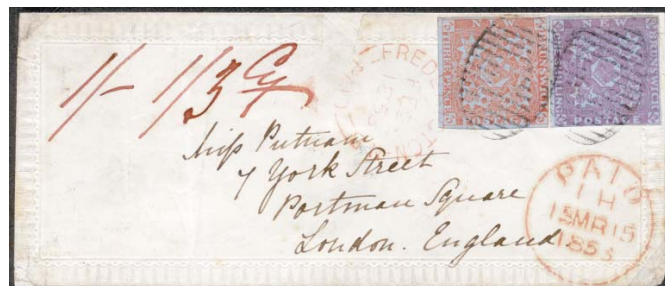 NEW
BRUNSWICK
POSTAGE
NEW
BRUNSWICK
POSTAGE
1/- 1/3 Cy
Miss Putnam
7 York Street
Portman Square
London. England
PAID
1 H
15 MR 15